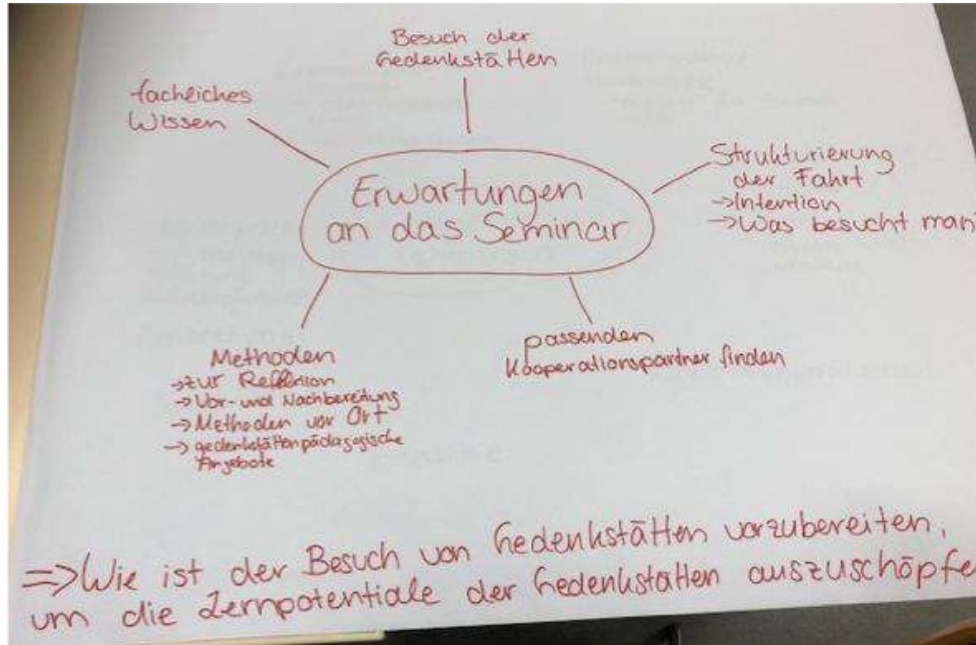 Besuch der
Gedenkstätten
fachliches
Wissen
Erwartungen
an das Seminar
Strukturierung
der Fahrt
→Intention
→Was besucht man
passenden
Kooperationspartner finden
Methoden
→zur Reflektion
→Vor- und Nachbereitung
→Methoden vor Ort
→gedenkstättenpädagogische
Angebote
=>Wie ist der Besuch von Gedenkstätten vorzubereiten,
um die Lernpotentiale der Gedenkstätten auszuschöpfe